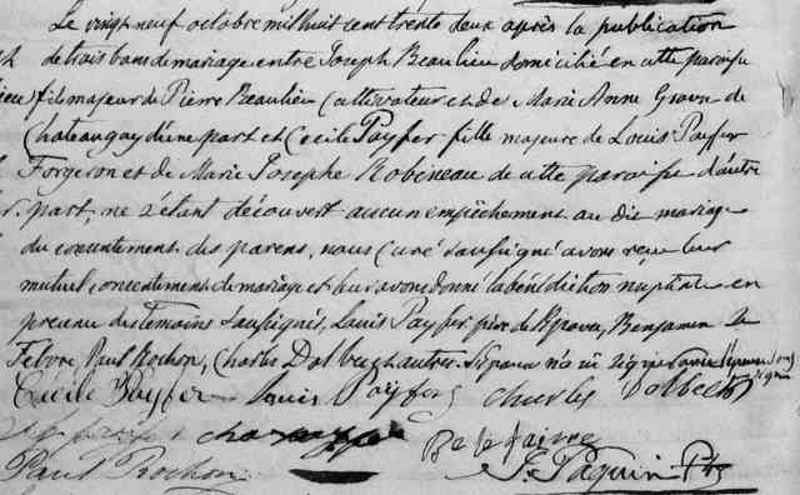 Le vingt neuf octobre mil huit cent trente deux après la publication
de trois bans de mariage entre Joseph Beaulieu domicilié en cette paroisse
fils majeur de Pierre Beaulieu Cultivateur et de Marie Anne Grova de
Chateaugay d'une part et Cecile Payfer fille majeure de Louis Payfer
Forgeron et de Marie Josephe Robineau de cette paroisse d'autre
part, ne s'étant découvert aucun empêchement au dit mariage
du consentement des parens, nous Curé soussigné avons reçu leur
mutuel consentement de mariage et leur avons donné la bénédiction nuptiale en
presence des temoins soussignés, Louis Payfer père de l'Epouse, Benjamin Le
Febvre, Paul Rochon, Charles Dolbec & autres. L'époux n'a su signer
Cecile Payfer Louis Payfer Charles Dolbec
Be le faivre
Paul Rochon J. Paquin Ptre